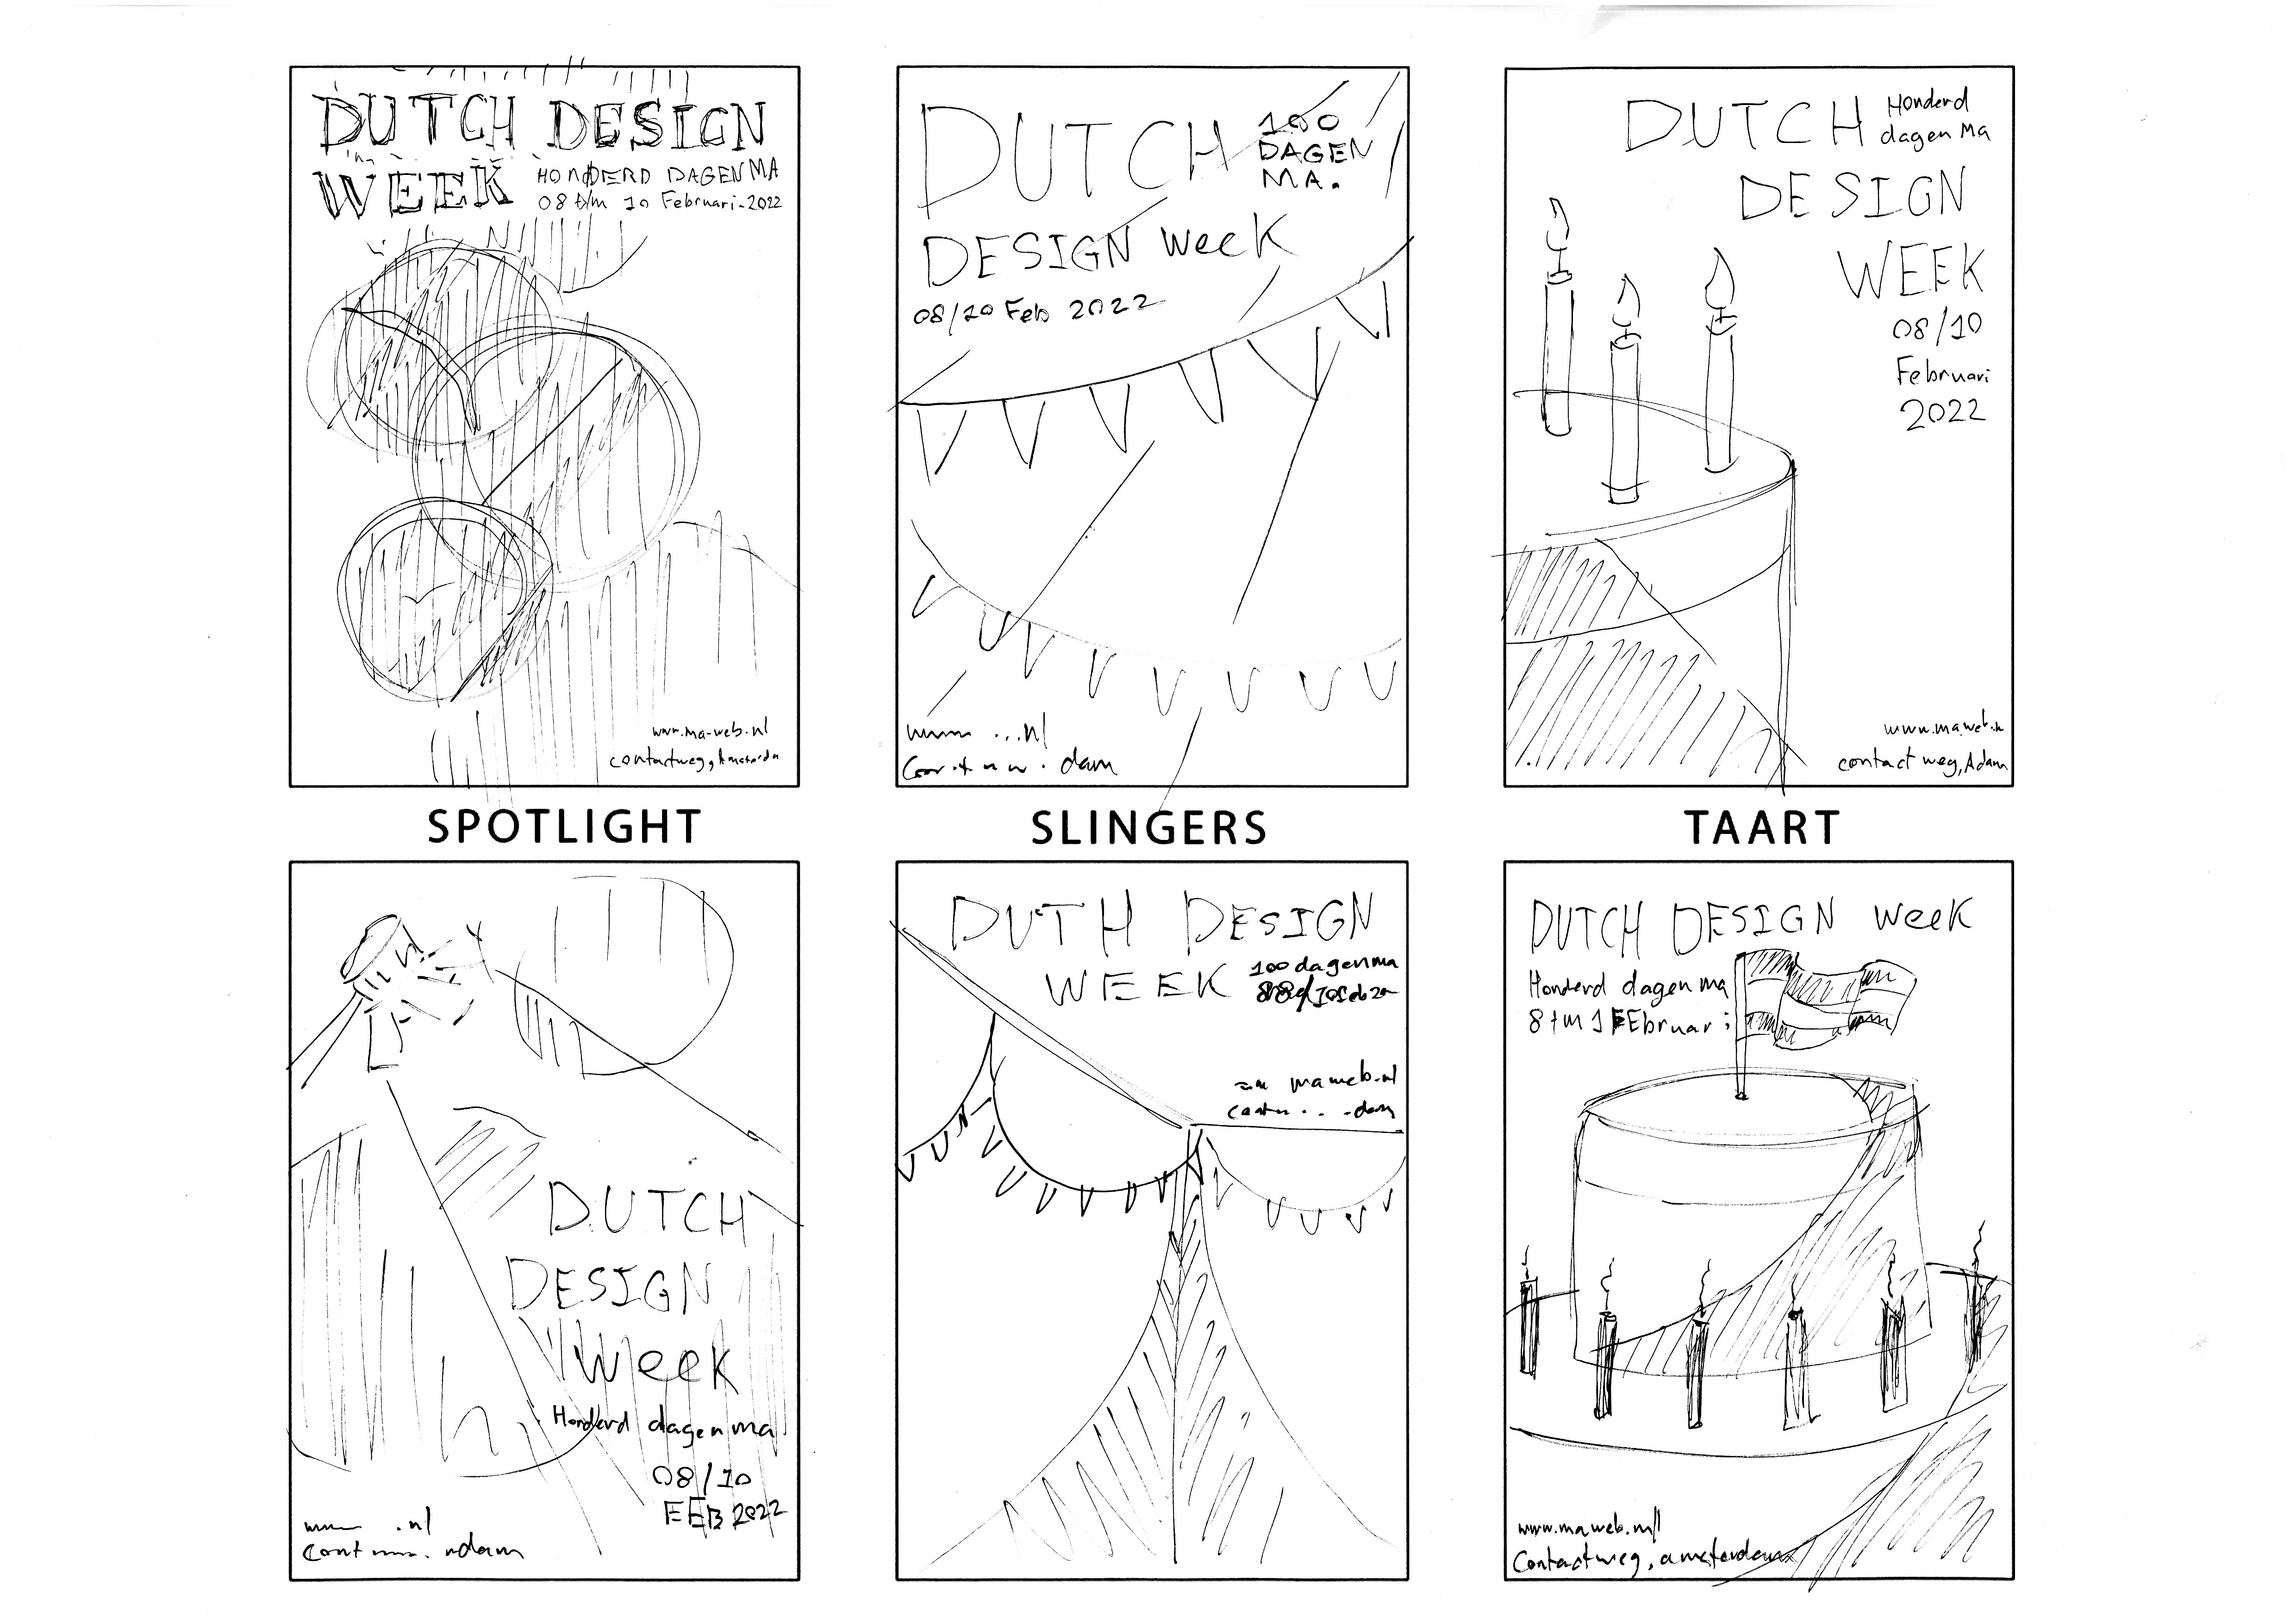 DUTCH DESIGN
WEEK HONDERD DAGEN MA
08 t/m 10 Februari-2022
www.ma-web.nl
contactweg, Amsterdm
DUTCH 100
DAGEN
MA.
DESIGN week
08/10 Feb 2022
...nl
dam
DUTCH Honderd
dagen Ma
DESIGN
WEEK
08/10
Februari
2022
www.maweb.n
contactweg, Adam
SPOTLIGHT
SLINGERS
TAART
DUTCH
DESIGN
Week
Honderd dagen ma
08/10
FEB 2022
.nl
Cont
DUTH DESIGN
WEEK 100 dagen ma
maweb.nl
dam
DUTCH DESIGN week
Honderd dagen ma
8 tm 1 FEbruari
www.maweb.nl
Contactweg, amsterdam